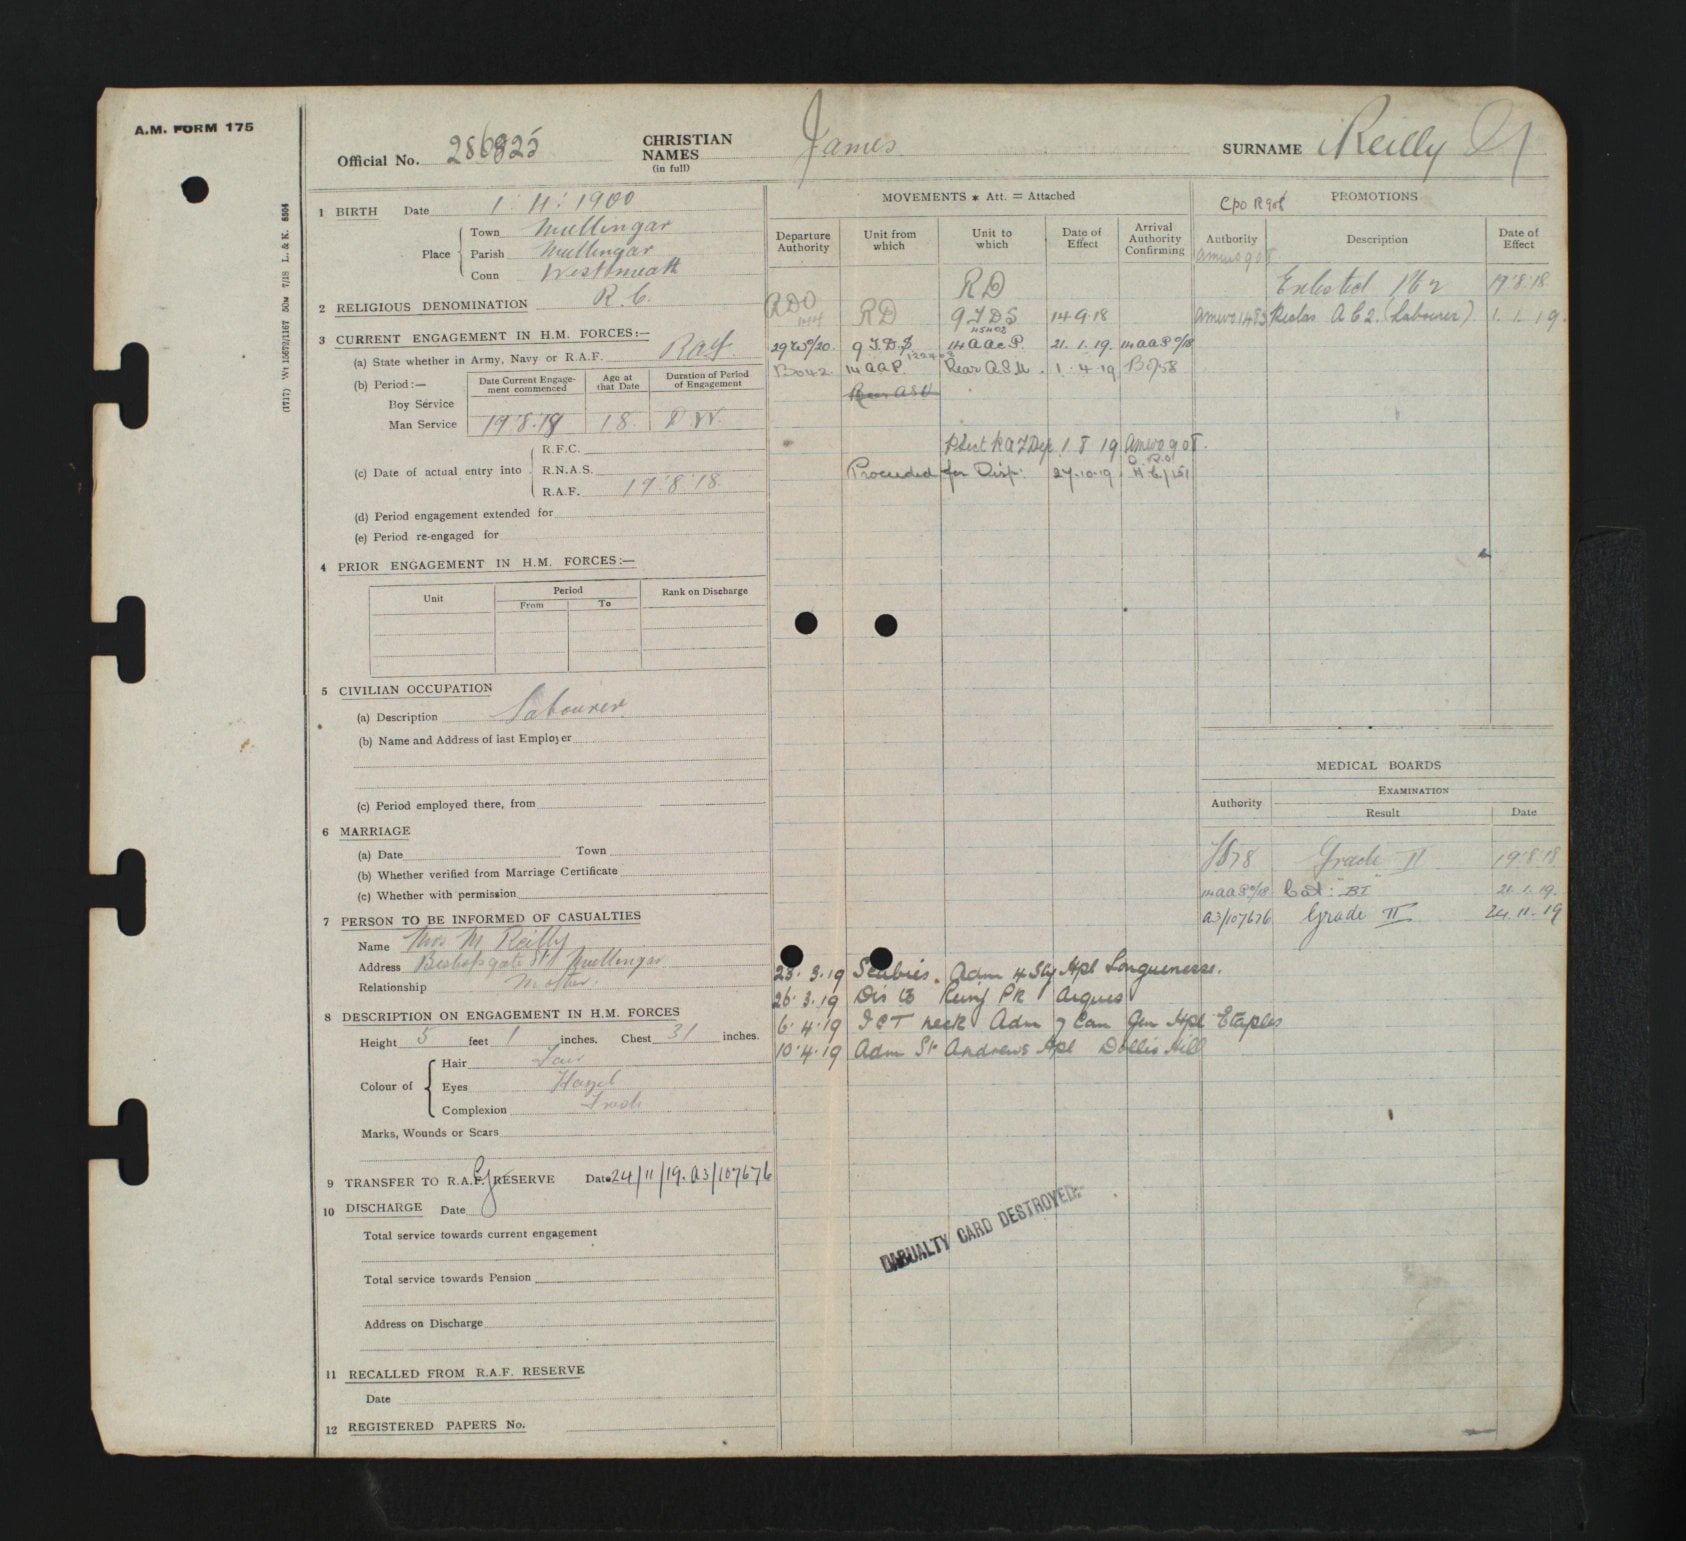 A.M. FORM 175
(1717) Wt 13672/1167 50M 7/18 L. & K. 8504
Official No. 286825 CHRISTIAN NAMES (in full) James SURNAME Reilly
1 BIRTH Date 1. 11. 1900
Place Town Mullingar
Parish Mullingar
Conn Westmeath
2 RELIGIOUS DENOMINATION R.C.
3 CURRENT ENGAGEMENT IN H.M. FORCES:—
(a) State whether in Army, Navy or R.A.F. RAF
(b) Period:— Date Current Engagement commenced Age at that Date Duration of Period of Engagement
Boy Service
Man Service 19.8.18 18 D.W.
(c) Date of actual entry into R.F.C.
R.N.A.S.
R.A.F. 19.8.18
(d) Period engagement extended for
(e) Period re-engaged for
4 PRIOR ENGAGEMENT IN H.M. FORCES:—
Unit Period Rank on Discharge
From To
5 CIVILIAN OCCUPATION
(a) Description Labourer
(b) Name and Address of last Employer
(c) Period employed there, from
6 MARRIAGE
(a) Date Town
(b) Whether verified from Marriage Certificate
(c) Whether with permission
7 PERSON TO BE INFORMED OF CASUALTIES
Name Mrs M Reilly
Address Bishopsgate St Mullingar
Relationship Mother.
8 DESCRIPTION ON ENGAGEMENT IN H.M. FORCES
Height 5 feet 1 inches. Chest 31 inches.
Colour of Hair Fair
Eyes Hazel
Complexion Fresh
Marks, Wounds or Scars
9 TRANSFER TO R.A.F. RESERVE Date 24/11/19. A3/107676
10 DISCHARGE Date
Total service towards current engagement
Total service towards Pension
Address on Discharge
11 RECALLED FROM R.A.F. RESERVE
Date
12 REGISTERED PAPERS No.
MOVEMENTS * Att. = Attached
Departure Authority Unit from which Unit to which Date of Effect Arrival Authority Confirming
RD
RDO RD 9 T D S 14 9 18
29 Wg/20. 9 T.D.S 14 A A C P. 21. 1. 19. 14 AAP 9/18
B042. 14 A A P. Rear A.S.U. 1. 4. 19 B0758
Rear ASU
RAF Dep 1 8 19 Amwo 908.
Proceeded for Disp. 27.10.19 H.C/151
PROMOTIONS
CPO R908
Authority Description Date of Effect
Amwo 908
Enlisted Pte 2 19.8.18
Amwo 1483 Reclas A C 2. (Labourer) 1. 1. 19.
MEDICAL BOARDS
EXAMINATION
Authority Result Date
Grade II 19.8.18
14 AAP 9/18 Cat: "BI" 21. 1. 19.
A3/107676 Grade II 24.11.19
23. 3. 19 Scabies. Adm 4 Sty Hpl Longuenesse.
26. 3. 19 Dis to Reinf Pk Arques
6. 4. 19 ICT neck Adm 7 Can Gen Hpl Etaples
10. 4. 19 Adm St Andrews Hpl Dollis Hill
CASUALTY CARD DESTROYED.